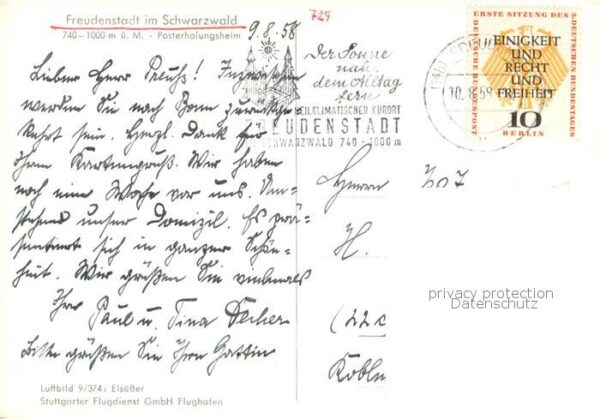 Freudenstadt im Schwarzwald
740–1000 m ü. M. - Posterholungsheim
9.8.58
729
Lieber Herr Preuß! Inzwischen
werden Sie nach Bonn zurückge-
kehrt sein. Herzl. Dank für
Ihren Kartengruß. Wir haben
noch eine Woche vor uns. Um-
stehend unser Domizil. Es prä-
sentiert sich in ganzer Schön-
heit. Wir grüßen Sie vielmals
Ihre Paul u. Tina
Bitte grüßen Sie Ihre Gattin
Luftbild 9/374: Elsäßer
Stuttgarter Flugdienst GmbH Flughafen
Der Sonne
nah
dem Alltag
fern
HEILKLIMATISCHER KURORT
FREUDENSTADT
SCHWARZWALD 740-1000 m
ERSTE SITZUNG DES 3. DEUTSCHEN BUNDESTAGES
EINIGKEIT
UND
RECHT
UND
FREIHEIT
10
BERLIN
DEUTSCHE BUNDESPOST
Herrn
H.
(22
Koble
privacy protection
Datenschutz